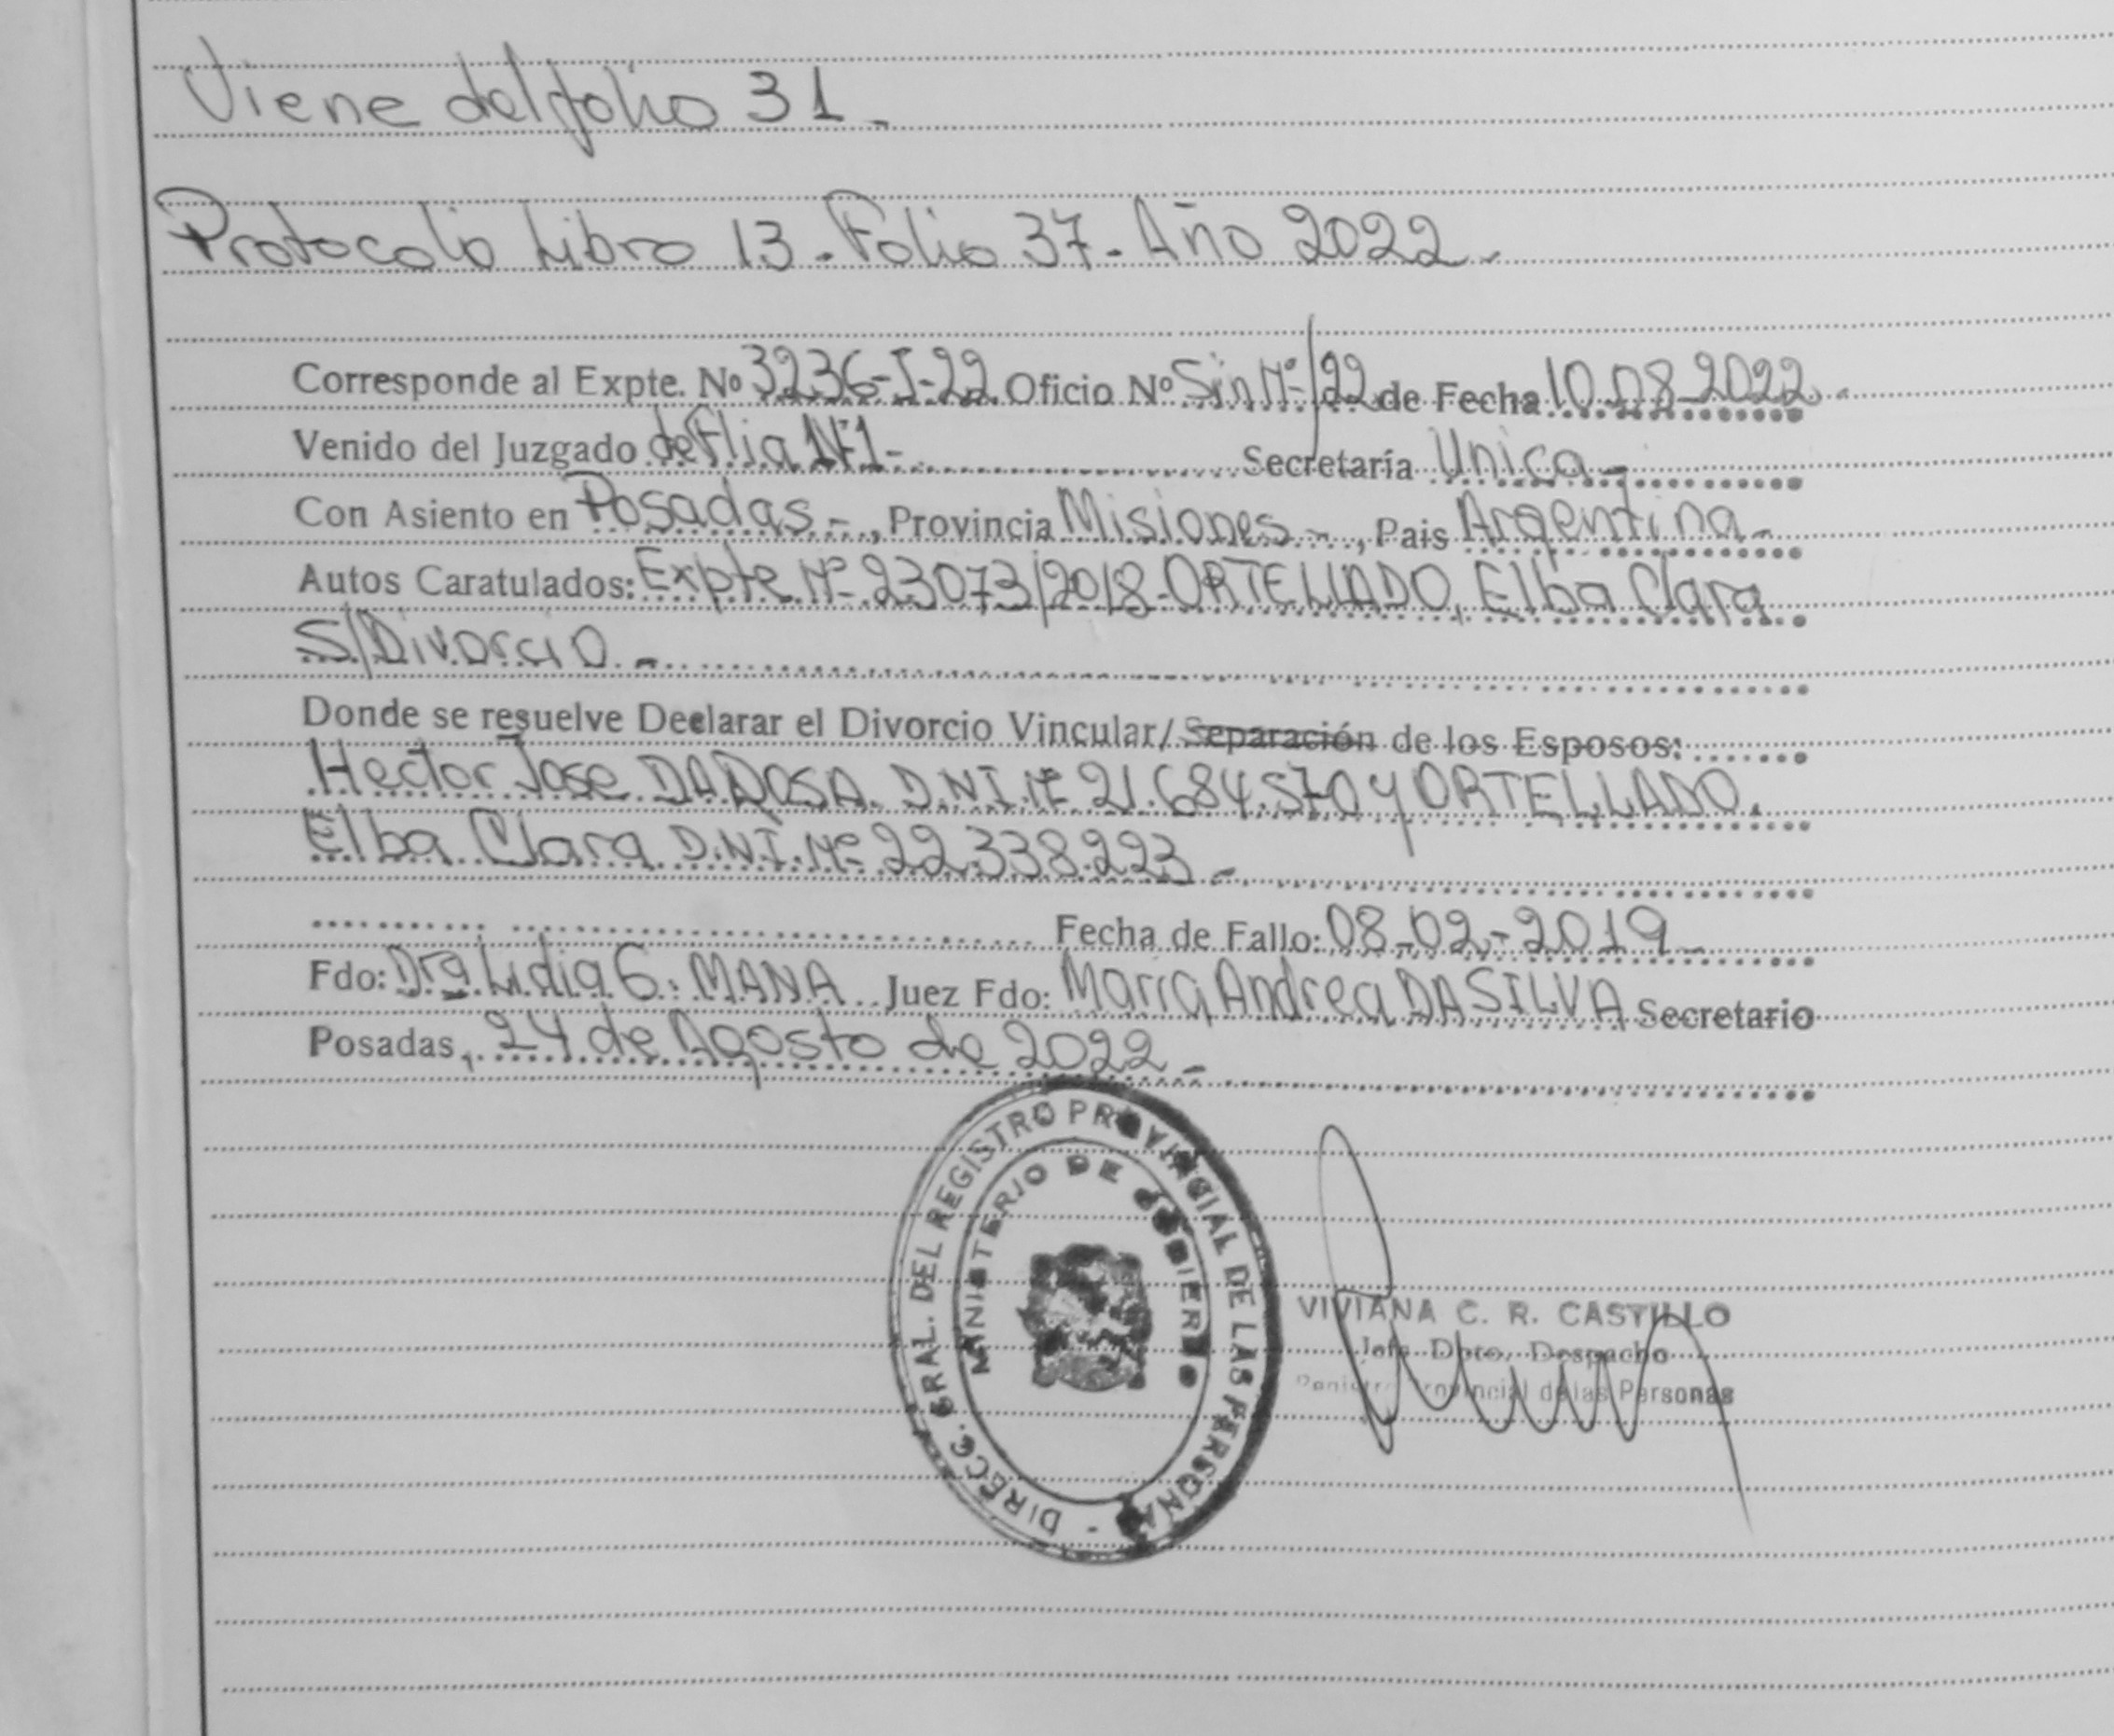 Viene del folio 31.
Protocolo Libro 13. Folio 37. Año 2022.
Corresponde al Expte. No 3236-I-22 Oficio Nº Sin Nº/22 de Fecha 10.08.2022.
Venido del Juzgado de Flia Nº1- Secretaría Unica.-
Con Asiento en Posadas.-, Provincia Misiones.-, Pais Argentina.-
Autos Caratulados: Expte Nº 23073/2018-ORTELLADO, Elba Clara
S/Divorcio.-
Donde se resuelve Declarar el Divorcio Vincular/Separación de los Esposos:
Hector Jose DA ROSA. D.N.I. Nº 21.684.570 y ORTELLADO,
Elba Clara D.N.I. Nº 22.338.223.-
Fecha de Fallo: 08-02-2019-
Fdo: Dra. Lidia G. MANA Juez Fdo: María Andrea DA SILVA Secretario
Posadas, 24 de Agosto de 2022.-
DIRECC. GRAL. DEL REGISTRO PROVINCIAL DE LAS PERSONAS -
MINISTERIO DE GOBIERNO
VIVIANA C. R. CASTILLO
Jefa Dpto. Despacho
Registro Provincial de las Personas